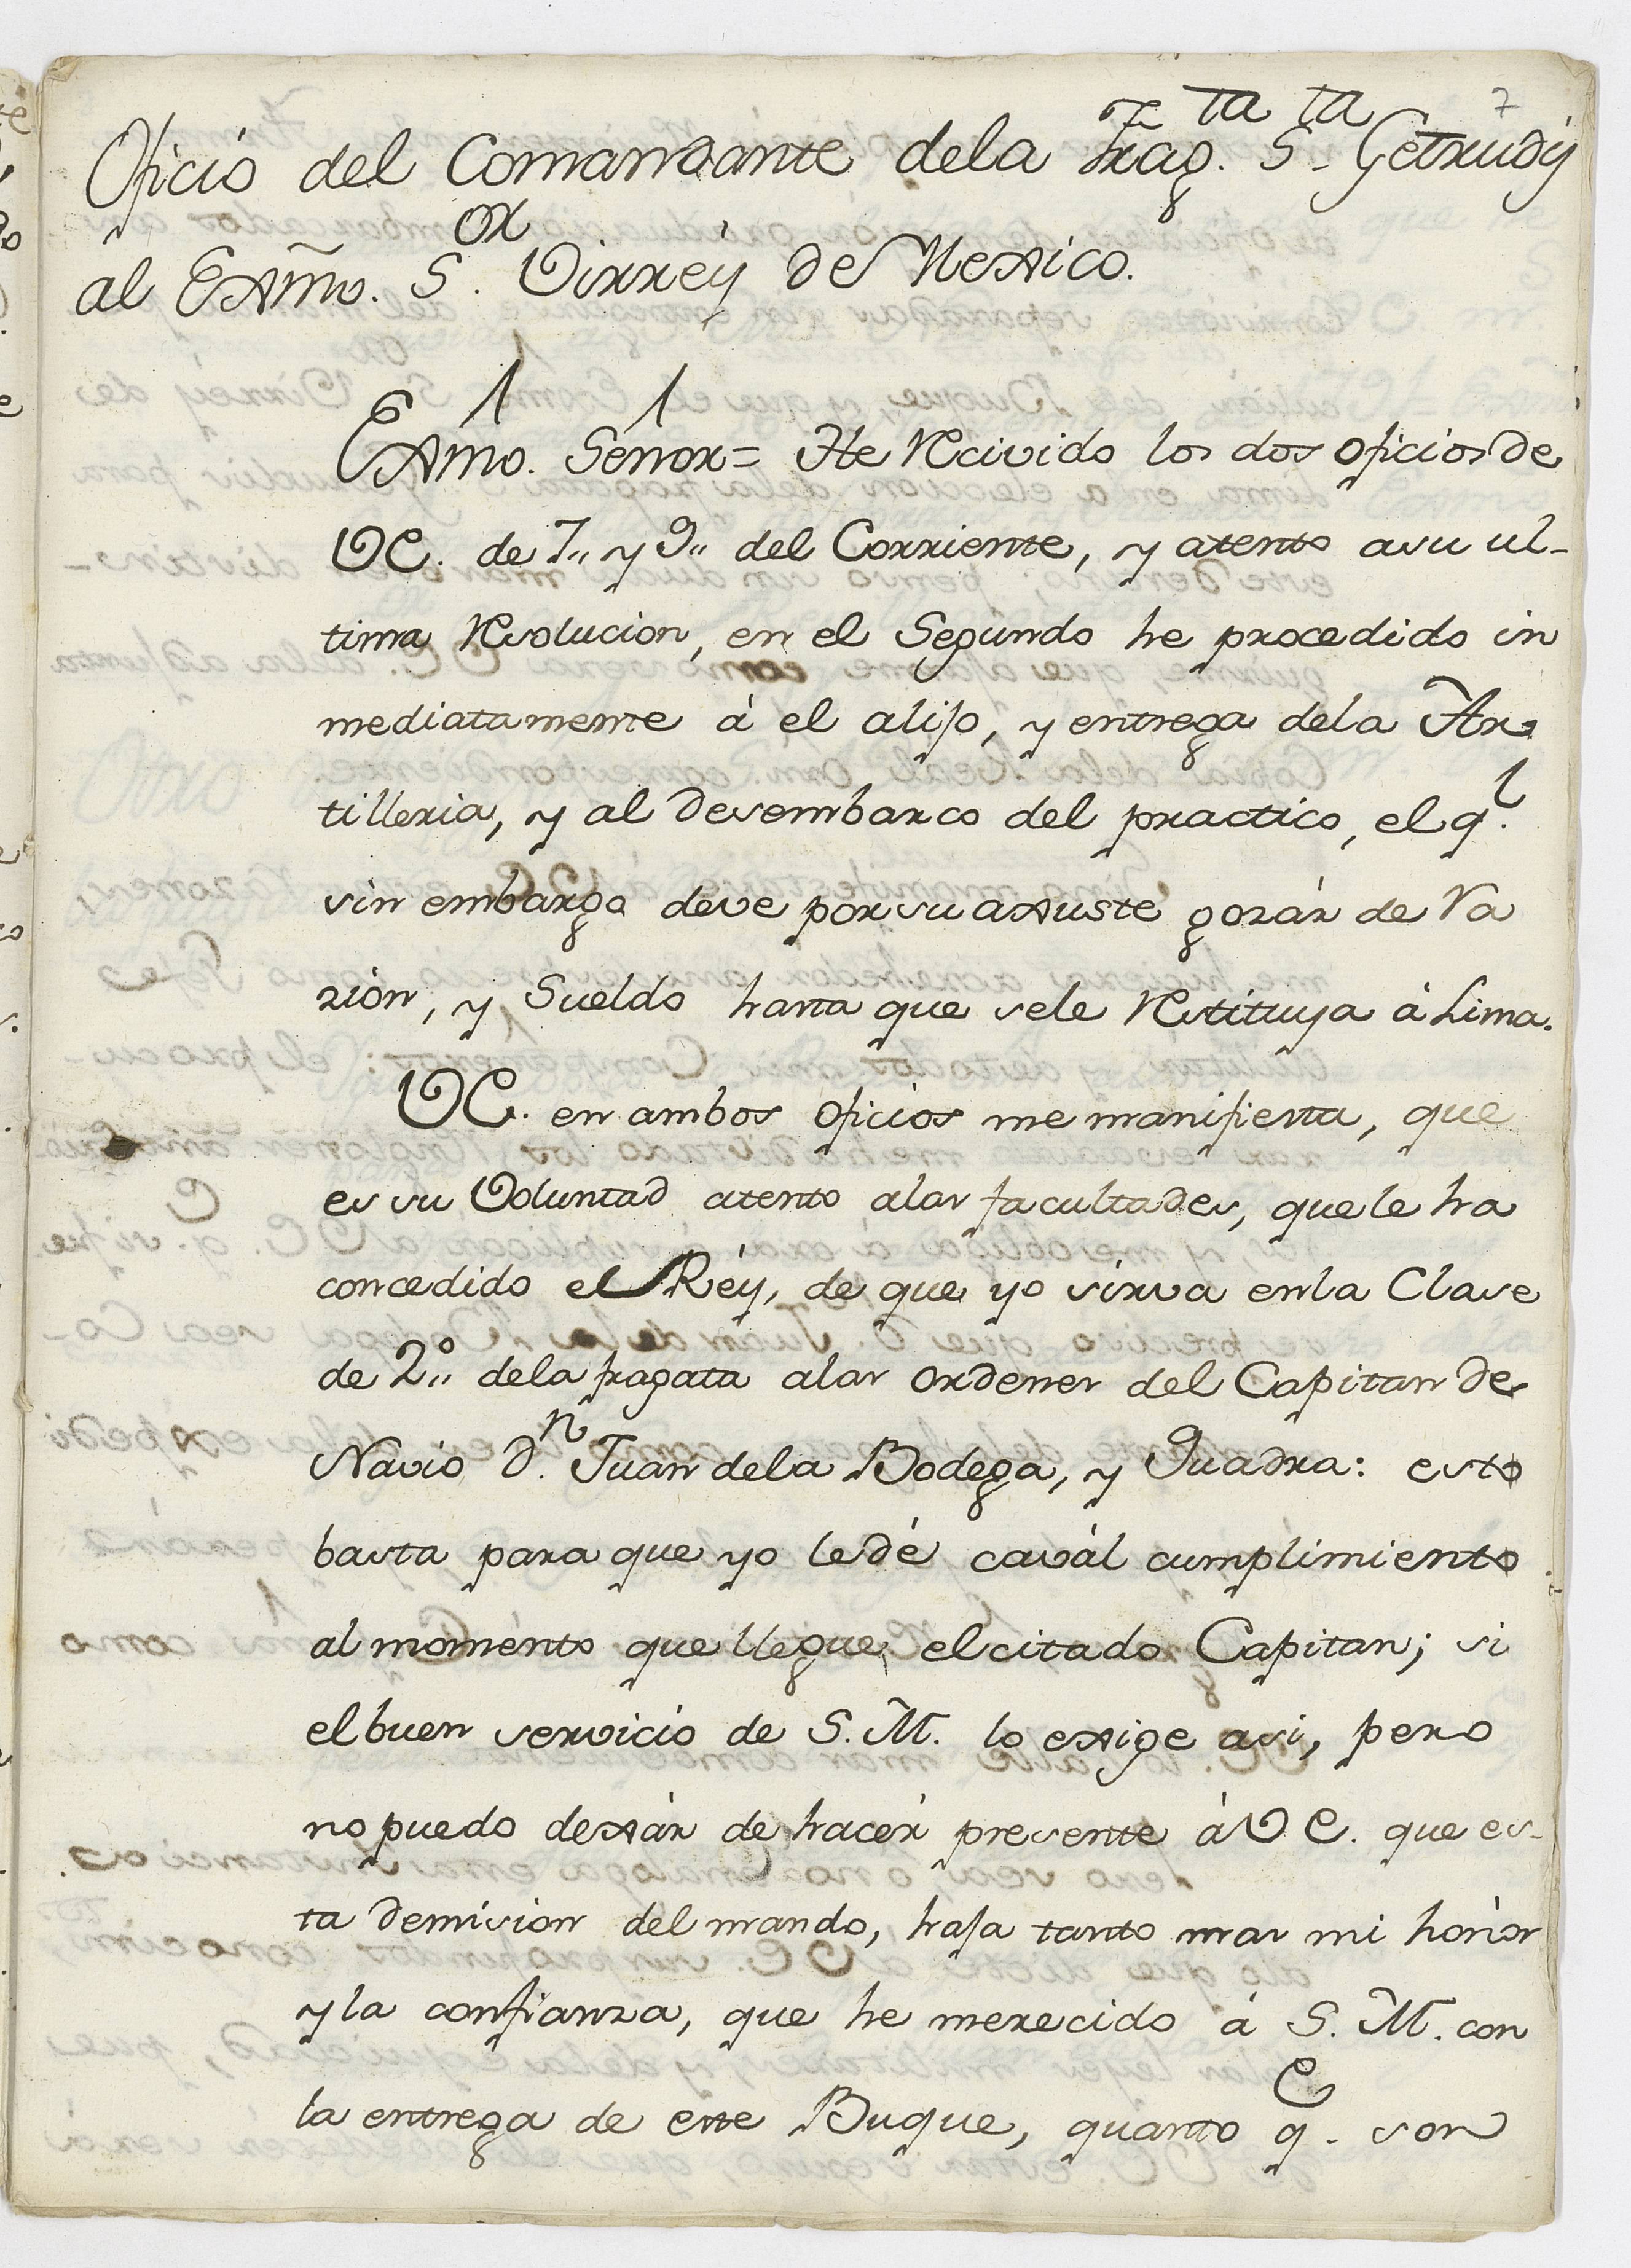 7
Oficio del Comandante dela Frag.ta S.ta Getrudis
al Exmo. S.or Virrey de Mexico.
Exmo. Señor = He recivido los dos oficios de
VE. de 7,, y 9,, del Corriente, y atento asu ul-
tima resolucion, en el Segundo he procedido in
mediatamente á el alijo, y entrega dela Ar-
tilleria, y al desembarco del practico, el q.l
sin embargo deve por su axuste gozár de ra
zion, y Sueldo hasta que sele restituya á Lima.
VE. en ambos oficios me manifiesta, que
es su Voluntad atento alas facultades, que le ha
concedido el Réy, de que yo sirva enla Clase
de 2º,, dela fragata alas ordenes del Capitan de
Navio d.n Juan dela Bodega, y Quadra: esto
basta para que yo le dé cavál cumplimiento
al momento que llegue el citado Capitan; si
el buen servicio de S. M. lo exige asi, pero
no puedo dexár de hacér presente á VE. que es-
ta demision del mando, haja tanto mas mi honor
y la confianza, que he merecido á S. M. con
la entrega de este Buque, quanto q.e son